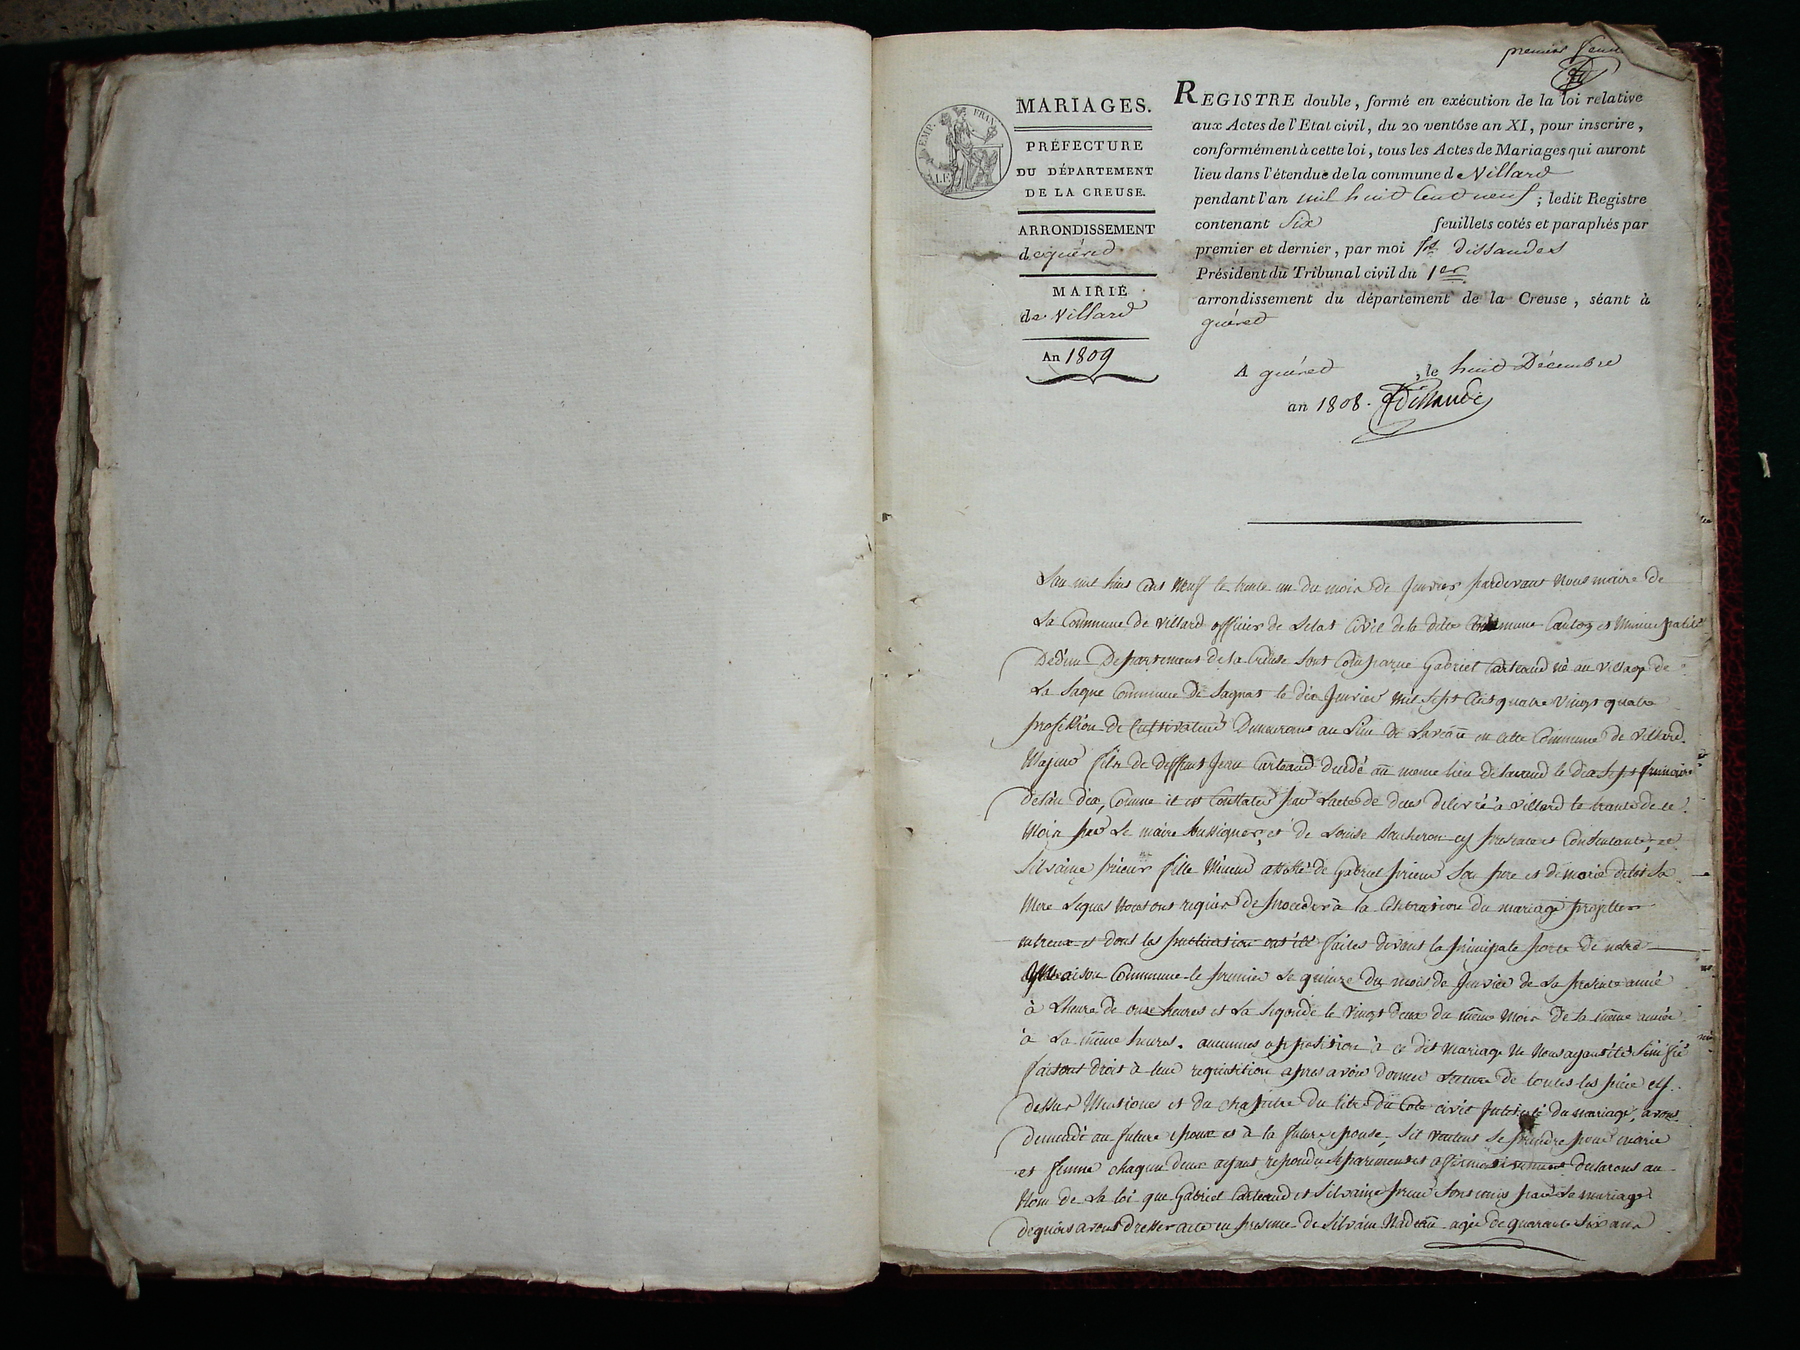 premier
EMP. FRAN.
ALE
MARIAGES.
PRÉFECTURE
DU DÉPARTEMENT
DE LA CREUSE.
ARRONDISSEMENT
de guéret
MAIRIE
de Villard
An 1809
REGISTRE double, formé en exécution de la loi relative
aux Actes de l'Etat civil, du 20 ventôse an XI, pour inscrire,
conformément à cette loi, tous les Actes de Mariages qui auront
lieu dans l'étendue de la commune de Villard
pendant l'an mil huit Cent neuf ; ledit Registre
contenant Six feuillets cotés et paraphés par
premier et dernier, par moi dissandes
Président du Tribunal civil du 1er
arrondissement du département de la Creuse, séant à
guéret
A guéret, le huit Décembre
an 1808.
Lan mil huit Cent Neuf le trente un du mois de Janvier pardevant Nous maire de
La Commune de Villard officier de Letat Civil de la dite Commune Canton et Municipalité
Departement de la Creuse sont Comparue Gabriel Carteaud né au Village de
La Sagne Commune de Sagnat le dix Janvier Mil Sept Cent quatre Vingt quatre
profession de Cultivateur Demeurant au Lieu de en cette Commune de Villard
Majeur fils de deffunt Jean Carteaud décédé au meme lieu le dix Sept frimaire
de lan dix, Comme il est Constater par Lacte de deces delivré à Villard le trante de ce
Mois par Le maire Soussigner, et de Louise cy presente et Consentante, et
Silvaine prieur fille Mineur de Gabriel prieur Son pere et de marie Sa
Mere Lequels Nous ont requis de proceder à la Celebration du mariage projetter
entreux et dont les publication ont été faites devant la principale porte de notre
maison Commune le premier le quinze du mois de Janvier de la presente année
à Lheure de onze heures et La Segonde le Vingt deux du même Mois de la même année
à La même heures. aucunnes opposition à ce dit mariage Ne Nous ayant été Sinifié
faisant droit à leur requisition apres avoir donner Lecture de toutes les pièce cy
dessus Mentionés et du chapitre du titre du Code civil Intitulé du mariage, avons
demandé au future epoux et à la future epouse Sil veulent Se prendre pour marie
et femme chaqun deux ayant repondu Separement et affirmativement declarons au
Nom de La loi que Gabriel Carteaud et Silvaine prieur Sont unis par le mariage
de quoi avons dresser acte en presence de Silvain Nadeau agée de quarante Six ans